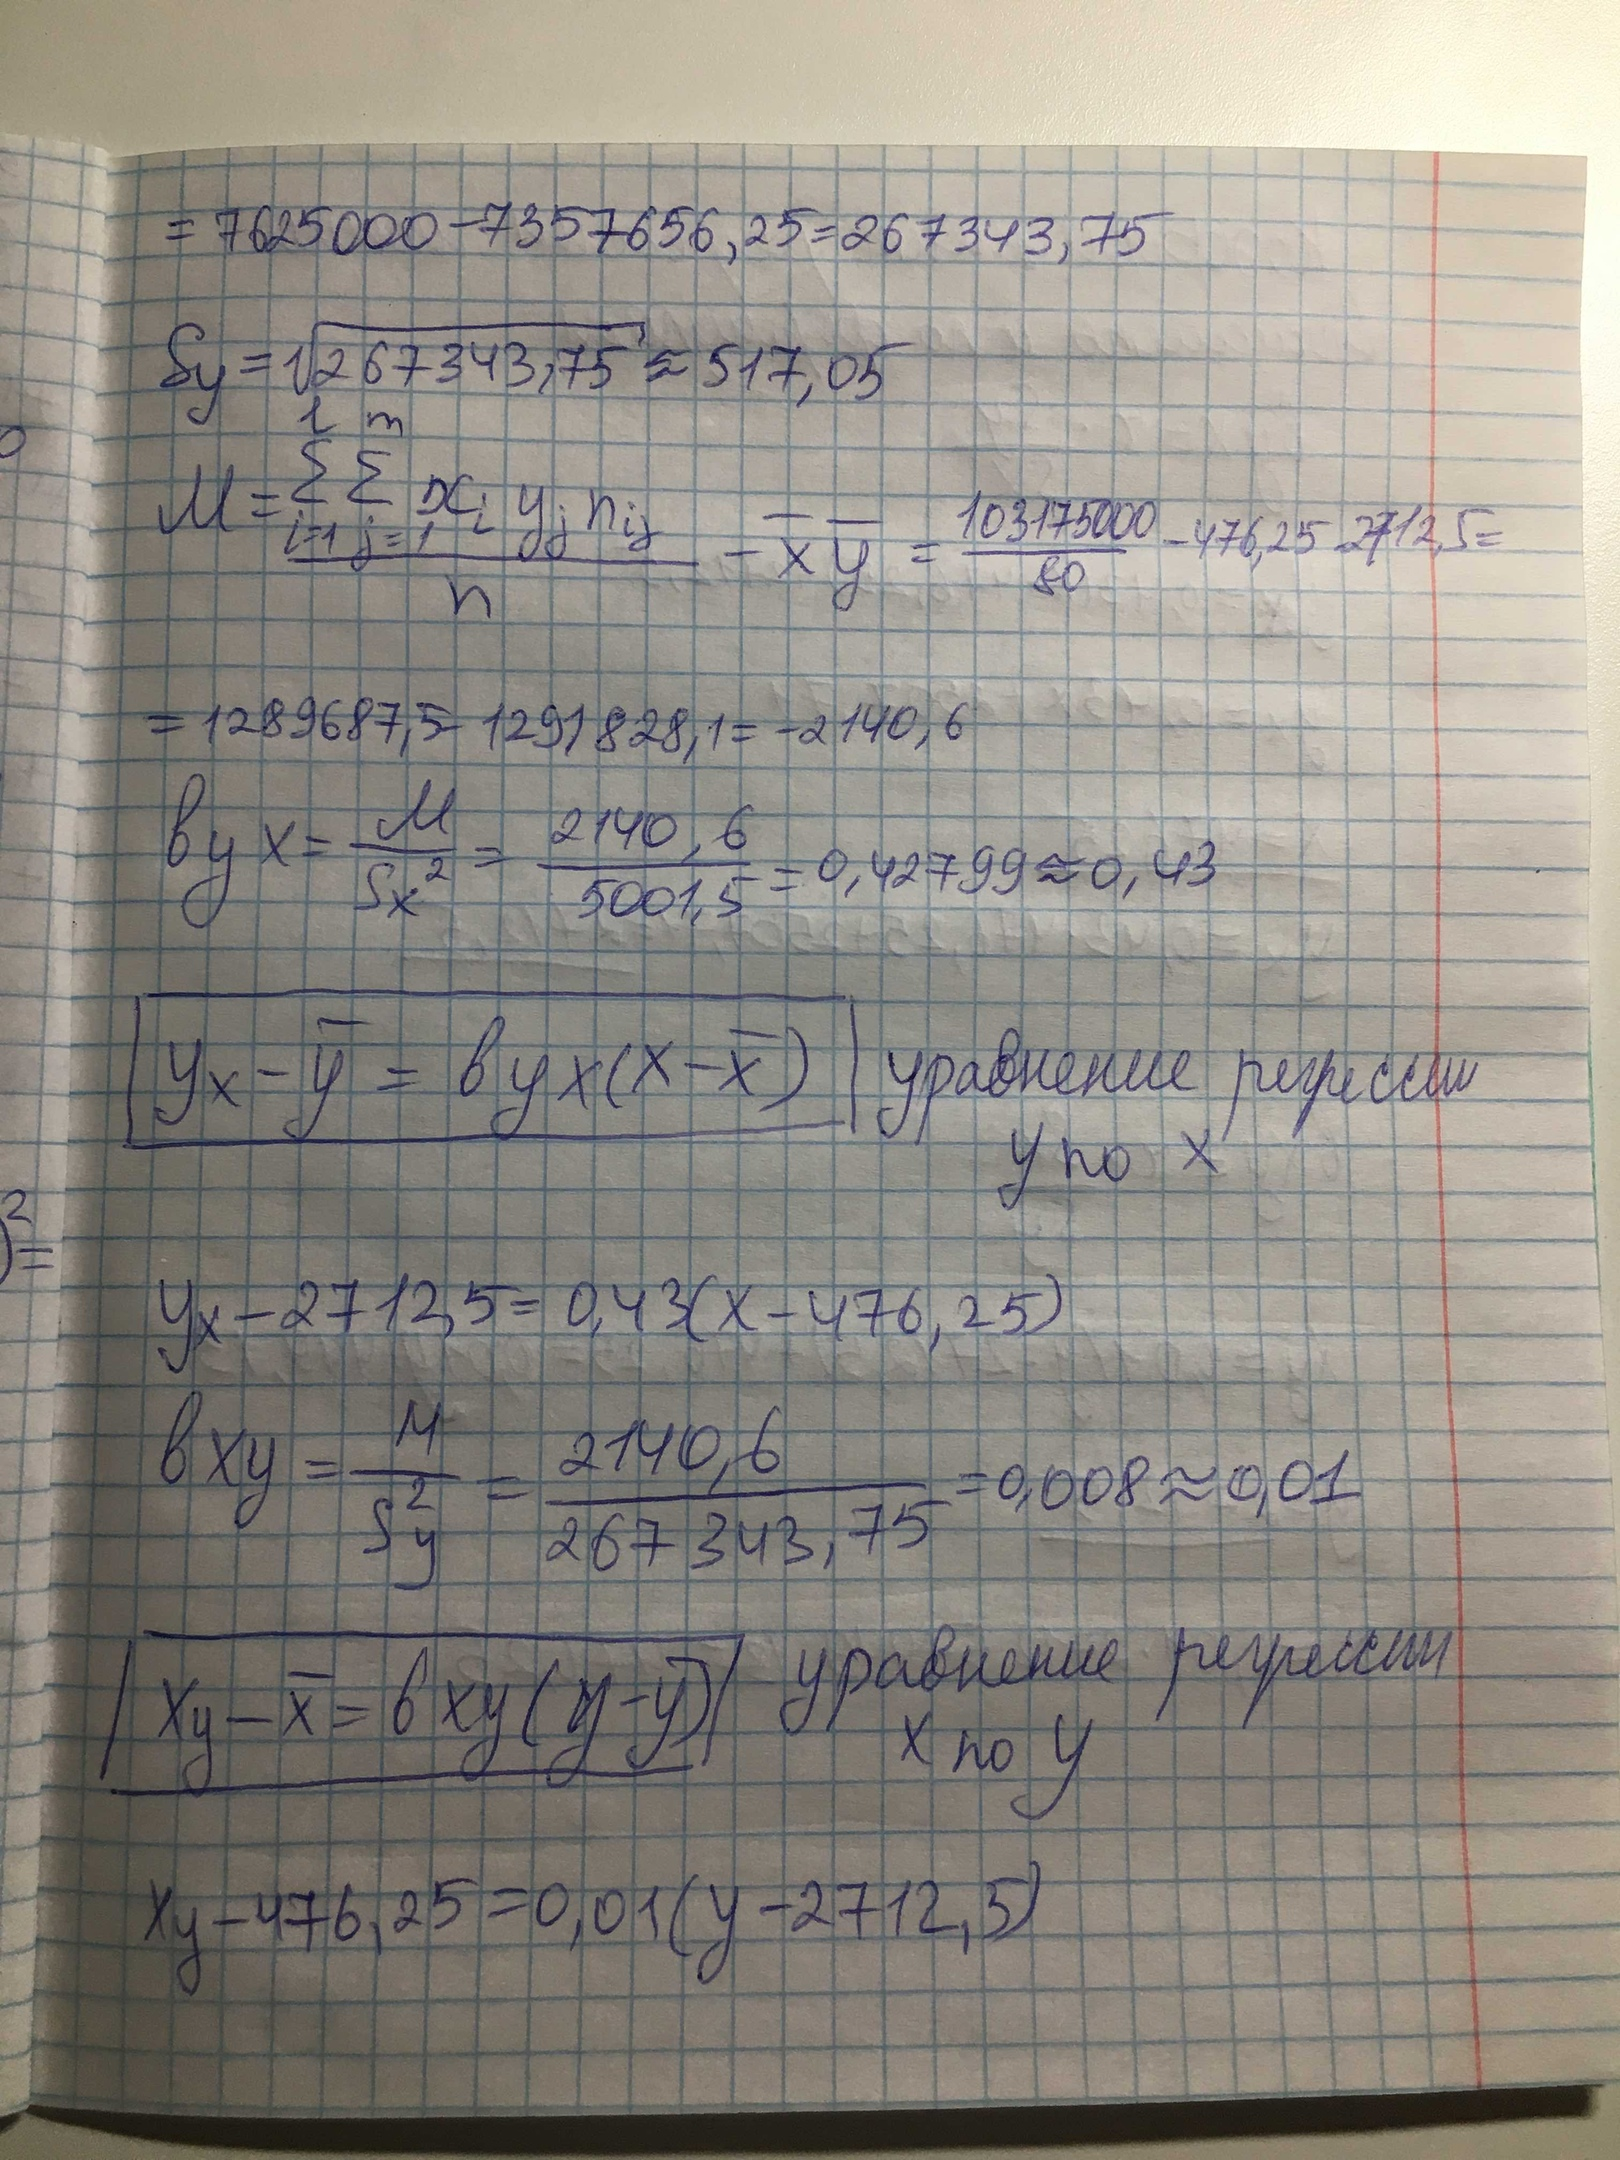 = 7625000 - 7357656,25 = 267343,75
Sy = √267343,75 ≈ 517,05
l m
M = Σ Σ xi yj nij
i=1 j=1
n
- x̅ y̅ = 103175000 / 80 - 476,25 2712,5 =
= 1289687,5 - 1291828,1 = -2140,6
вyx = M / Sx² = 2140,6 / 5001,5 = 0,42799 ≈ 0,43
yx - y̅ = вyx(x - x̅) уравнение регрессии
y по x
yx - 2712,5 = 0,43(x - 476,25)
вxy = M / Sy² = 2140,6 / 267343,75 = 0,008 ≈ 0,01
xy - x̅ = вxy(y - y̅) уравнение регрессии
x по y
xy - 476,25 = 0,01(y - 2712,5)
0
)² =